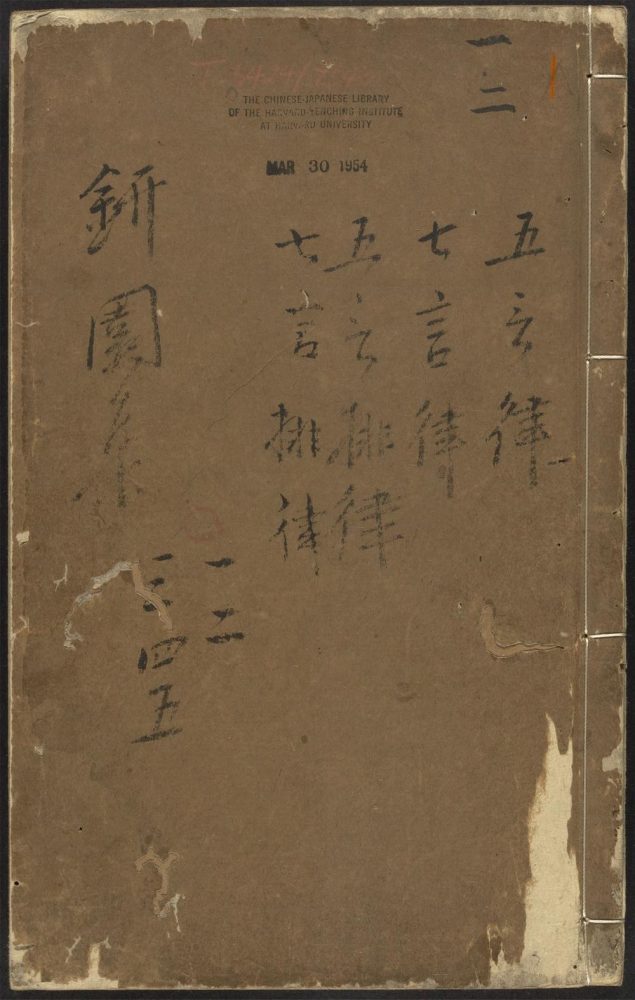 THE CHINESE-JAPANESE LIBRARY
OF THE HARVARD-YENCHING INSTITUTE
AT HARVARD UNIVERSITY
MAR 30 1954
一二
五言律
七言律
五言排律
七言排律
一二
三四五
鈃園集